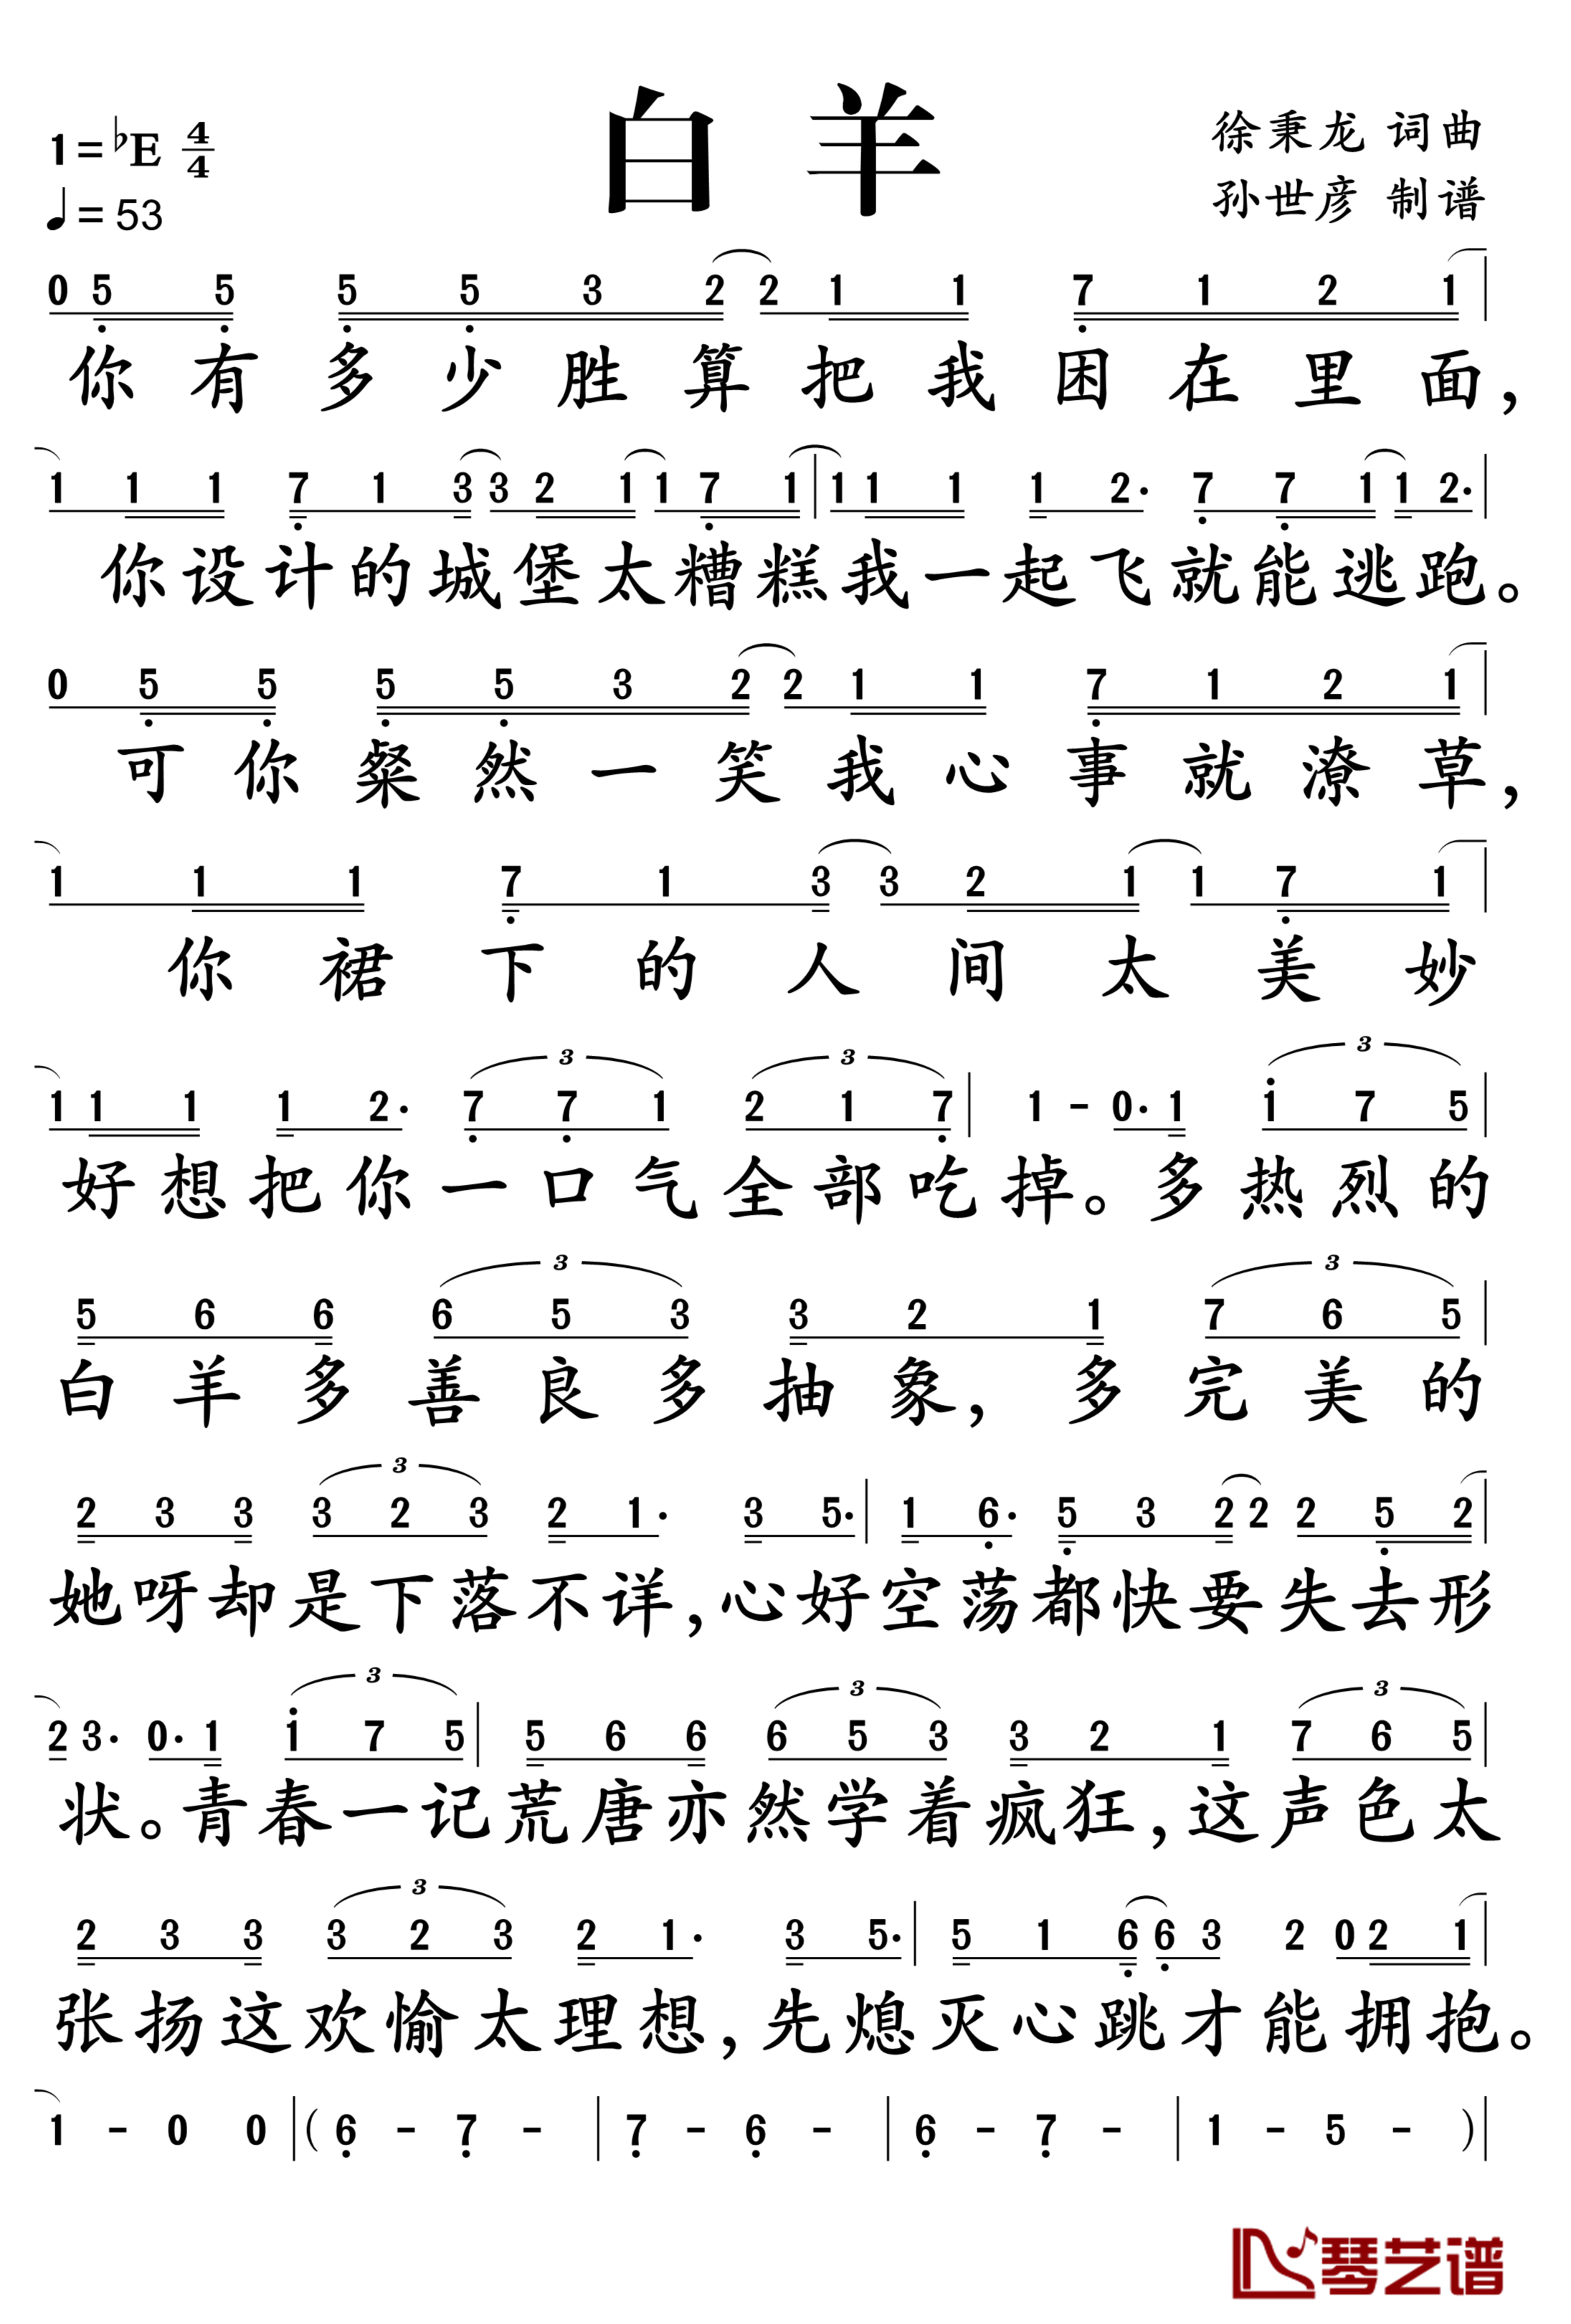 白羊
1=♭E 4/4
♩=53
徐秉龙 词曲
孙世彦 制谱
0 5̣ 5̣ 5̣ 5̣ 3 2 2 1 1 7̣ 1 2 1 |
你有多少胜算把我困在里面，
1 1 1 7̣ 1 3 3 2 1 1 7̣ 1 | 1 1 1 1 2· 7̣ 7̣ 1 1 2· |
你设计的城堡太糟糕我一起飞就能逃跑。
0 5̣ 5̣ 5̣ 5̣ 3 2 2 1 1 7̣ 1 2 1 |
可你粲然一笑我心事就潦草，
1 1 1 7̣ 1 3 3 2 1 1 7̣ 1 |
你裙下的人间太美妙
3 3
1 1 1 1 2· 7̣ 7̣ 1 2 1 7̣ | 1 - 0· 1 1̇ 7 5 |
3
好想把你一口气全部吃掉。多热烈的
3 3
5 6 6 6 5 3 3 2 1 7 6 5 |
白羊多善良多抽象，多完美的
3
2 3 3 3 2 3 2 1· 3 5· | 1 6̣· 5̣ 3 2 2 2 5̣ 2 |
她呀却是下落不详，心好空荡都快要失去形
3 3 3
2 3· 0· 1 1̇ 7 5 | 5 6 6 6 5 3 3 2 1 7 6 5 |
状。青春一记荒唐亦然学着疯狂，这声色太
3
2 3 3 3 2 3 2 1· 3 5· | 5 1 6̣ 6̣ 3 2 0 2 1 |
张扬这欢愉太理想，先熄灭心跳才能拥抱。
1 - 0 0 | ( 6̣ - 7̣ - | 7̣ - 6̣ - | 6̣ - 7̣ - | 1 - 5 - ) |
琴艺谱